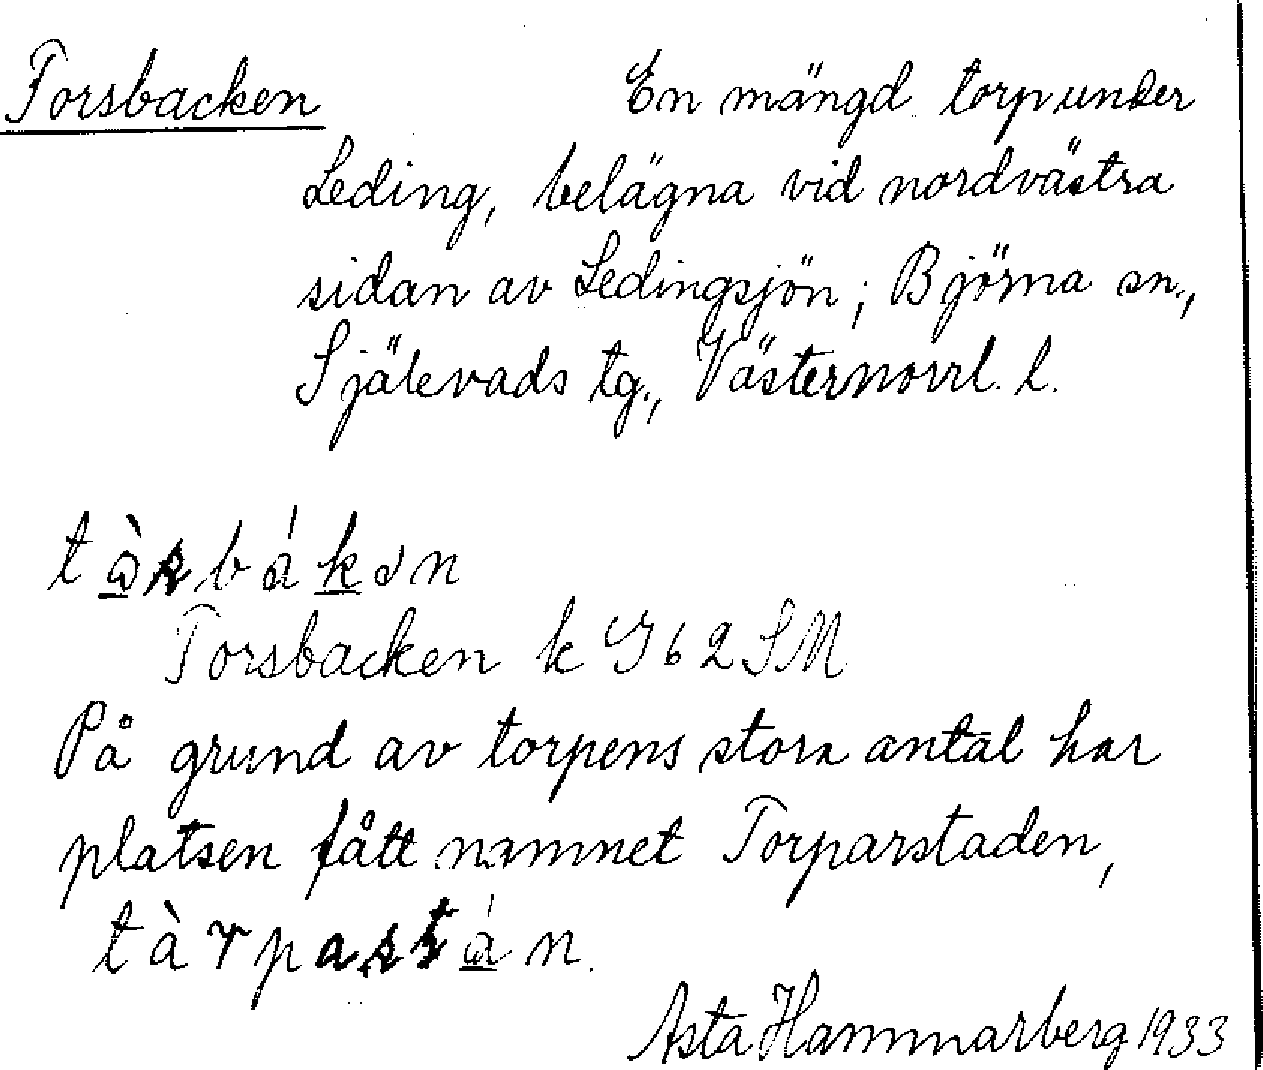 Torsbacken En mängd torp under
Leding, belägna vid nordvästra
sidan av Ledingsjön; Björna sn.,
Själevads tg., Västernorrl. l.
Torsbacken k I62SM
På grund av torpens stora antal har
platsen fått namnet Torparstaden,
Asta Hammarberg 1933